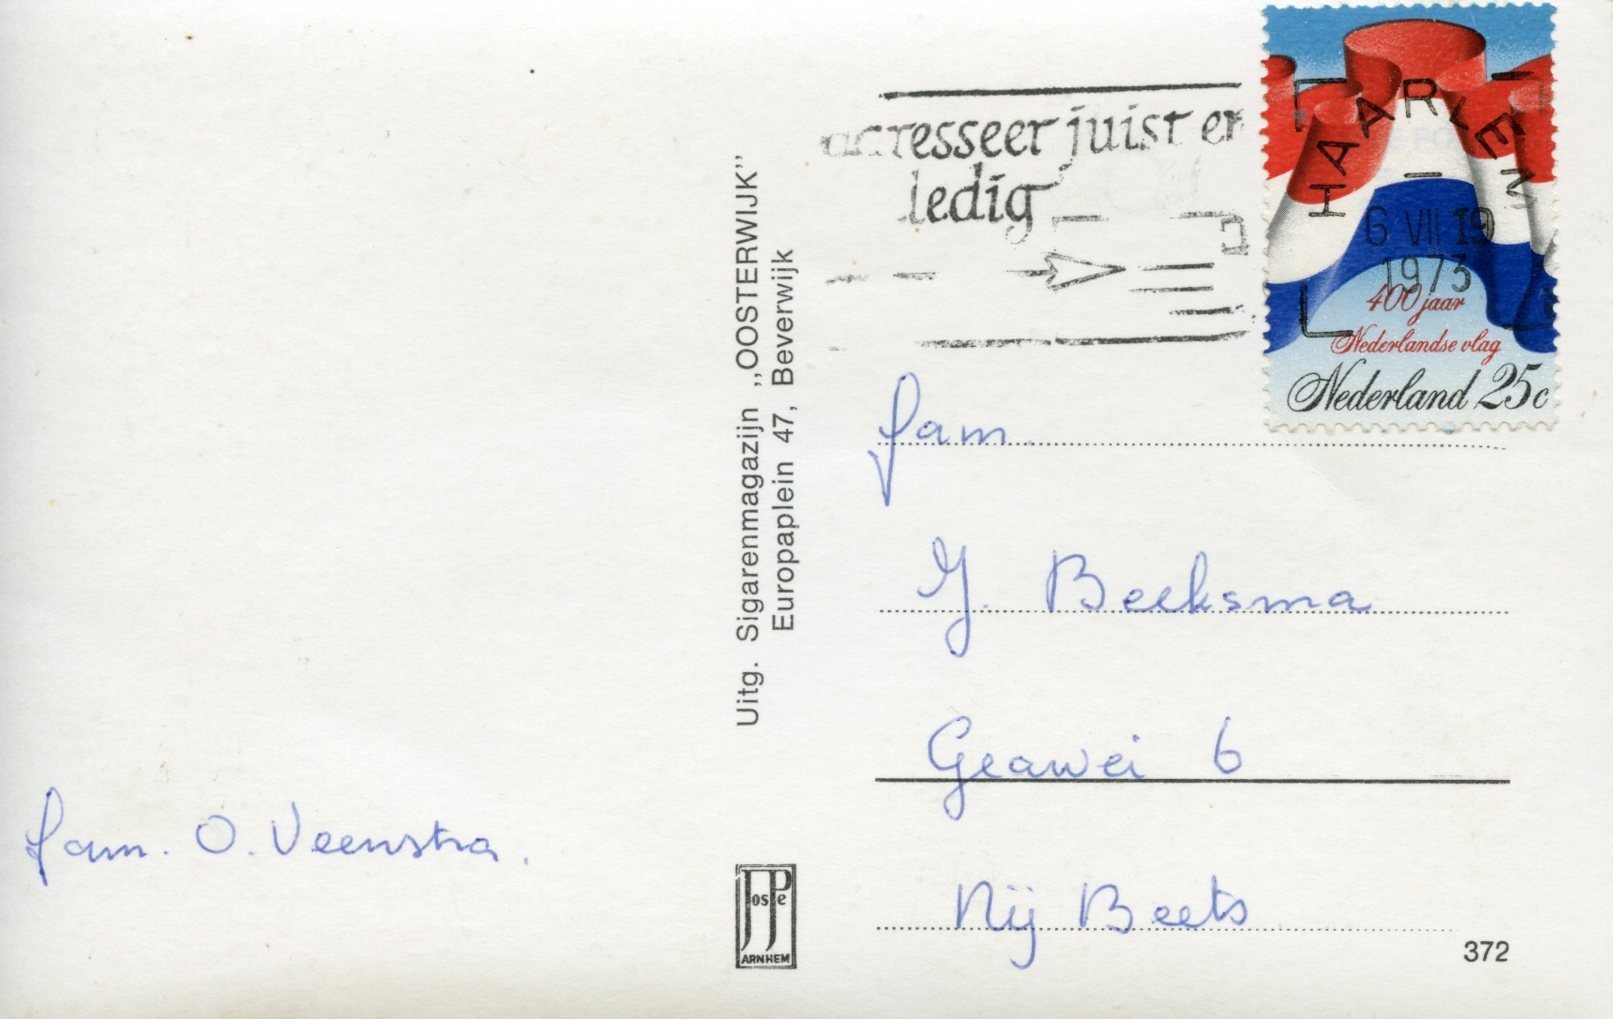 adresseer juist en
volledig
HAARLEM
6 VII 19
1973
400 jaar
Nederlandse vlag
Nederland 25c
Uitg. Sigarenmagazijn „OOSTERWIJK”
Europaplein 47, Beverwijk
fam.
J. Beeksma
Geawei 6
Nij Beets
fam. O. Veenstra.
JosPé
ARNHEM
372